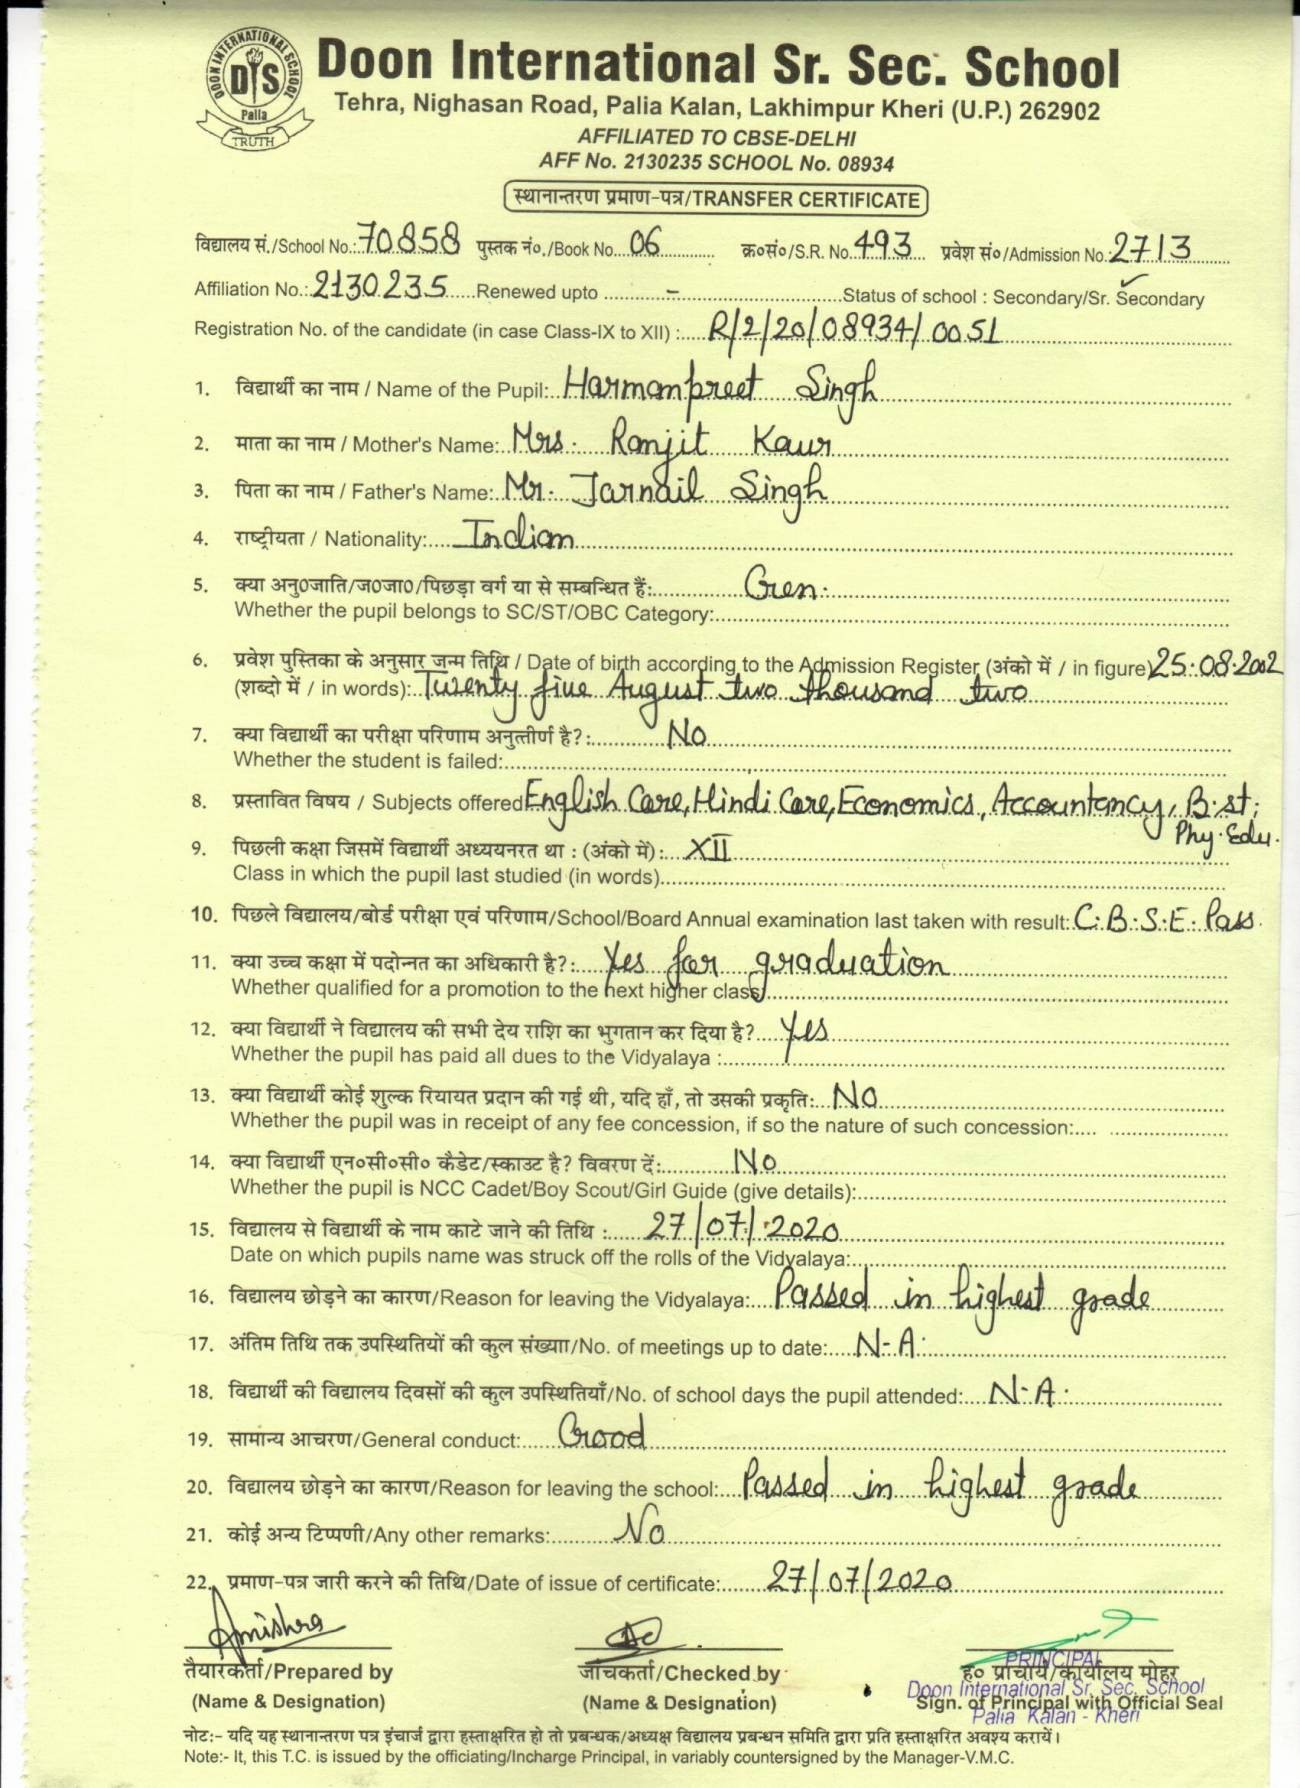 DOON INTERNATIONAL SCHOOL
DIS
Palia
TRUTH
Doon International Sr. Sec. School
Tehra, Nighasan Road, Palia Kalan, Lakhimpur Kheri (U.P.) 262902
AFFILIATED TO CBSE-DELHI
AFF No. 2130235 SCHOOL No. 08934
स्थानान्तरण प्रमाण-पत्र/TRANSFER CERTIFICATE
विद्यालय सं./School No.: 70858 पुस्तक नं०./Book No. 06 क्र०सं०/S.R. No. 493 प्रवेश सं०/Admission No.: 2713
Affiliation No.: 2130235 Renewed upto - Status of school : Secondary/Sr. Secondary
Registration No. of the candidate (in case Class-IX to XII) : R/2/20/08934/0051
1. विद्यार्थी का नाम / Name of the Pupil: Harmanpreet Singh
2. माता का नाम / Mother's Name: Mrs. Ranjit Kaur
3. पिता का नाम / Father's Name: Mr. Jarnail Singh
4. राष्ट्रीयता / Nationality: Indian
5. क्या अनु0जाति/ज0जा0/पिछड़ा वर्ग या से सम्बन्धित हैं: Gen.
Whether the pupil belongs to SC/ST/OBC Category:
6. प्रवेश पुस्तिका के अनुसार जन्म तिथि / Date of birth according to the Admission Register (अंको में / in figure) 25.08.2002
(शब्दो में / in words): Twenty five August two thousand two
7. क्या विद्यार्थी का परीक्षा परिणाम अनुत्तीर्ण है?: No
Whether the student is failed:
8. प्रस्तावित विषय / Subjects offered English Core, Hindi Core, Economics, Accountancy, B.st,
Phy. Edu.
9. पिछली कक्षा जिसमें विद्यार्थी अध्ययनरत था : (अंको में): XII
Class in which the pupil last studied (in words)
10. पिछले विद्यालय/बोर्ड परीक्षा एवं परिणाम/School/Board Annual examination last taken with result: C.B.S.E. Pass.
11. क्या उच्च कक्षा में पदोन्नत का अधिकारी है?: Yes for graduation
Whether qualified for a promotion to the next higher class
12. क्या विद्यार्थी ने विद्यालय की सभी देय राशि का भुगतान कर दिया है? Yes
Whether the pupil has paid all dues to the Vidyalaya :
13. क्या विद्यार्थी कोई शुल्क रियायत प्रदान की गई थी, यदि हाँ, तो उसकी प्रकृति: No
Whether the pupil was in receipt of any fee concession, if so the nature of such concession:
14. क्या विद्यार्थी एन०सी०सी० कैडेट/स्काउट है? विवरण दें: No
Whether the pupil is NCC Cadet/Boy Scout/Girl Guide (give details):
15. विद्यालय से विद्यार्थी के नाम काटे जाने की तिथि : 27/07/2020
Date on which pupils name was struck off the rolls of the Vidyalaya:
16. विद्यालय छोड़ने का कारण/Reason for leaving the Vidyalaya: Passed in highest grade
17. अंतिम तिथि तक उपस्थितियों की कुल संख्याा/No. of meetings up to date: N-A.
18. विद्यार्थी की विद्यालय दिवसों की कुल उपस्थितियाँ/No. of school days the pupil attended: N-A.
19. सामान्य आचरण/General conduct: Good
20. विद्यालय छोड़ने का कारण/Reason for leaving the school: Passed in highest grade
21. कोई अन्य टिप्पणी/Any other remarks: No
22. प्रमाण-पत्र जारी करने की तिथि/Date of issue of certificate: 27/07/2020
Amishra
तैयारकर्ता/Prepared by जाँचकर्ता/Checked by ह० प्राचार्य/कार्यालय मोहर
(Name & Designation) (Name & Designation) Sign. of Principal with Official Seal
PRINCIPAL
Doon International Sr. Sec. School
Palia Kalan - Kheri
नोट:- यदि यह स्थानान्तरण पत्र इंचार्ज द्वारा हस्ताक्षरित हो तो प्रबन्धक/अध्यक्ष विद्यालय प्रबन्धन समिति द्वारा प्रति हस्ताक्षरित अवश्य करायें।
Note:- It, this T.C. is issued by the officiating/Incharge Principal, in variably countersigned by the Manager-V.M.C.